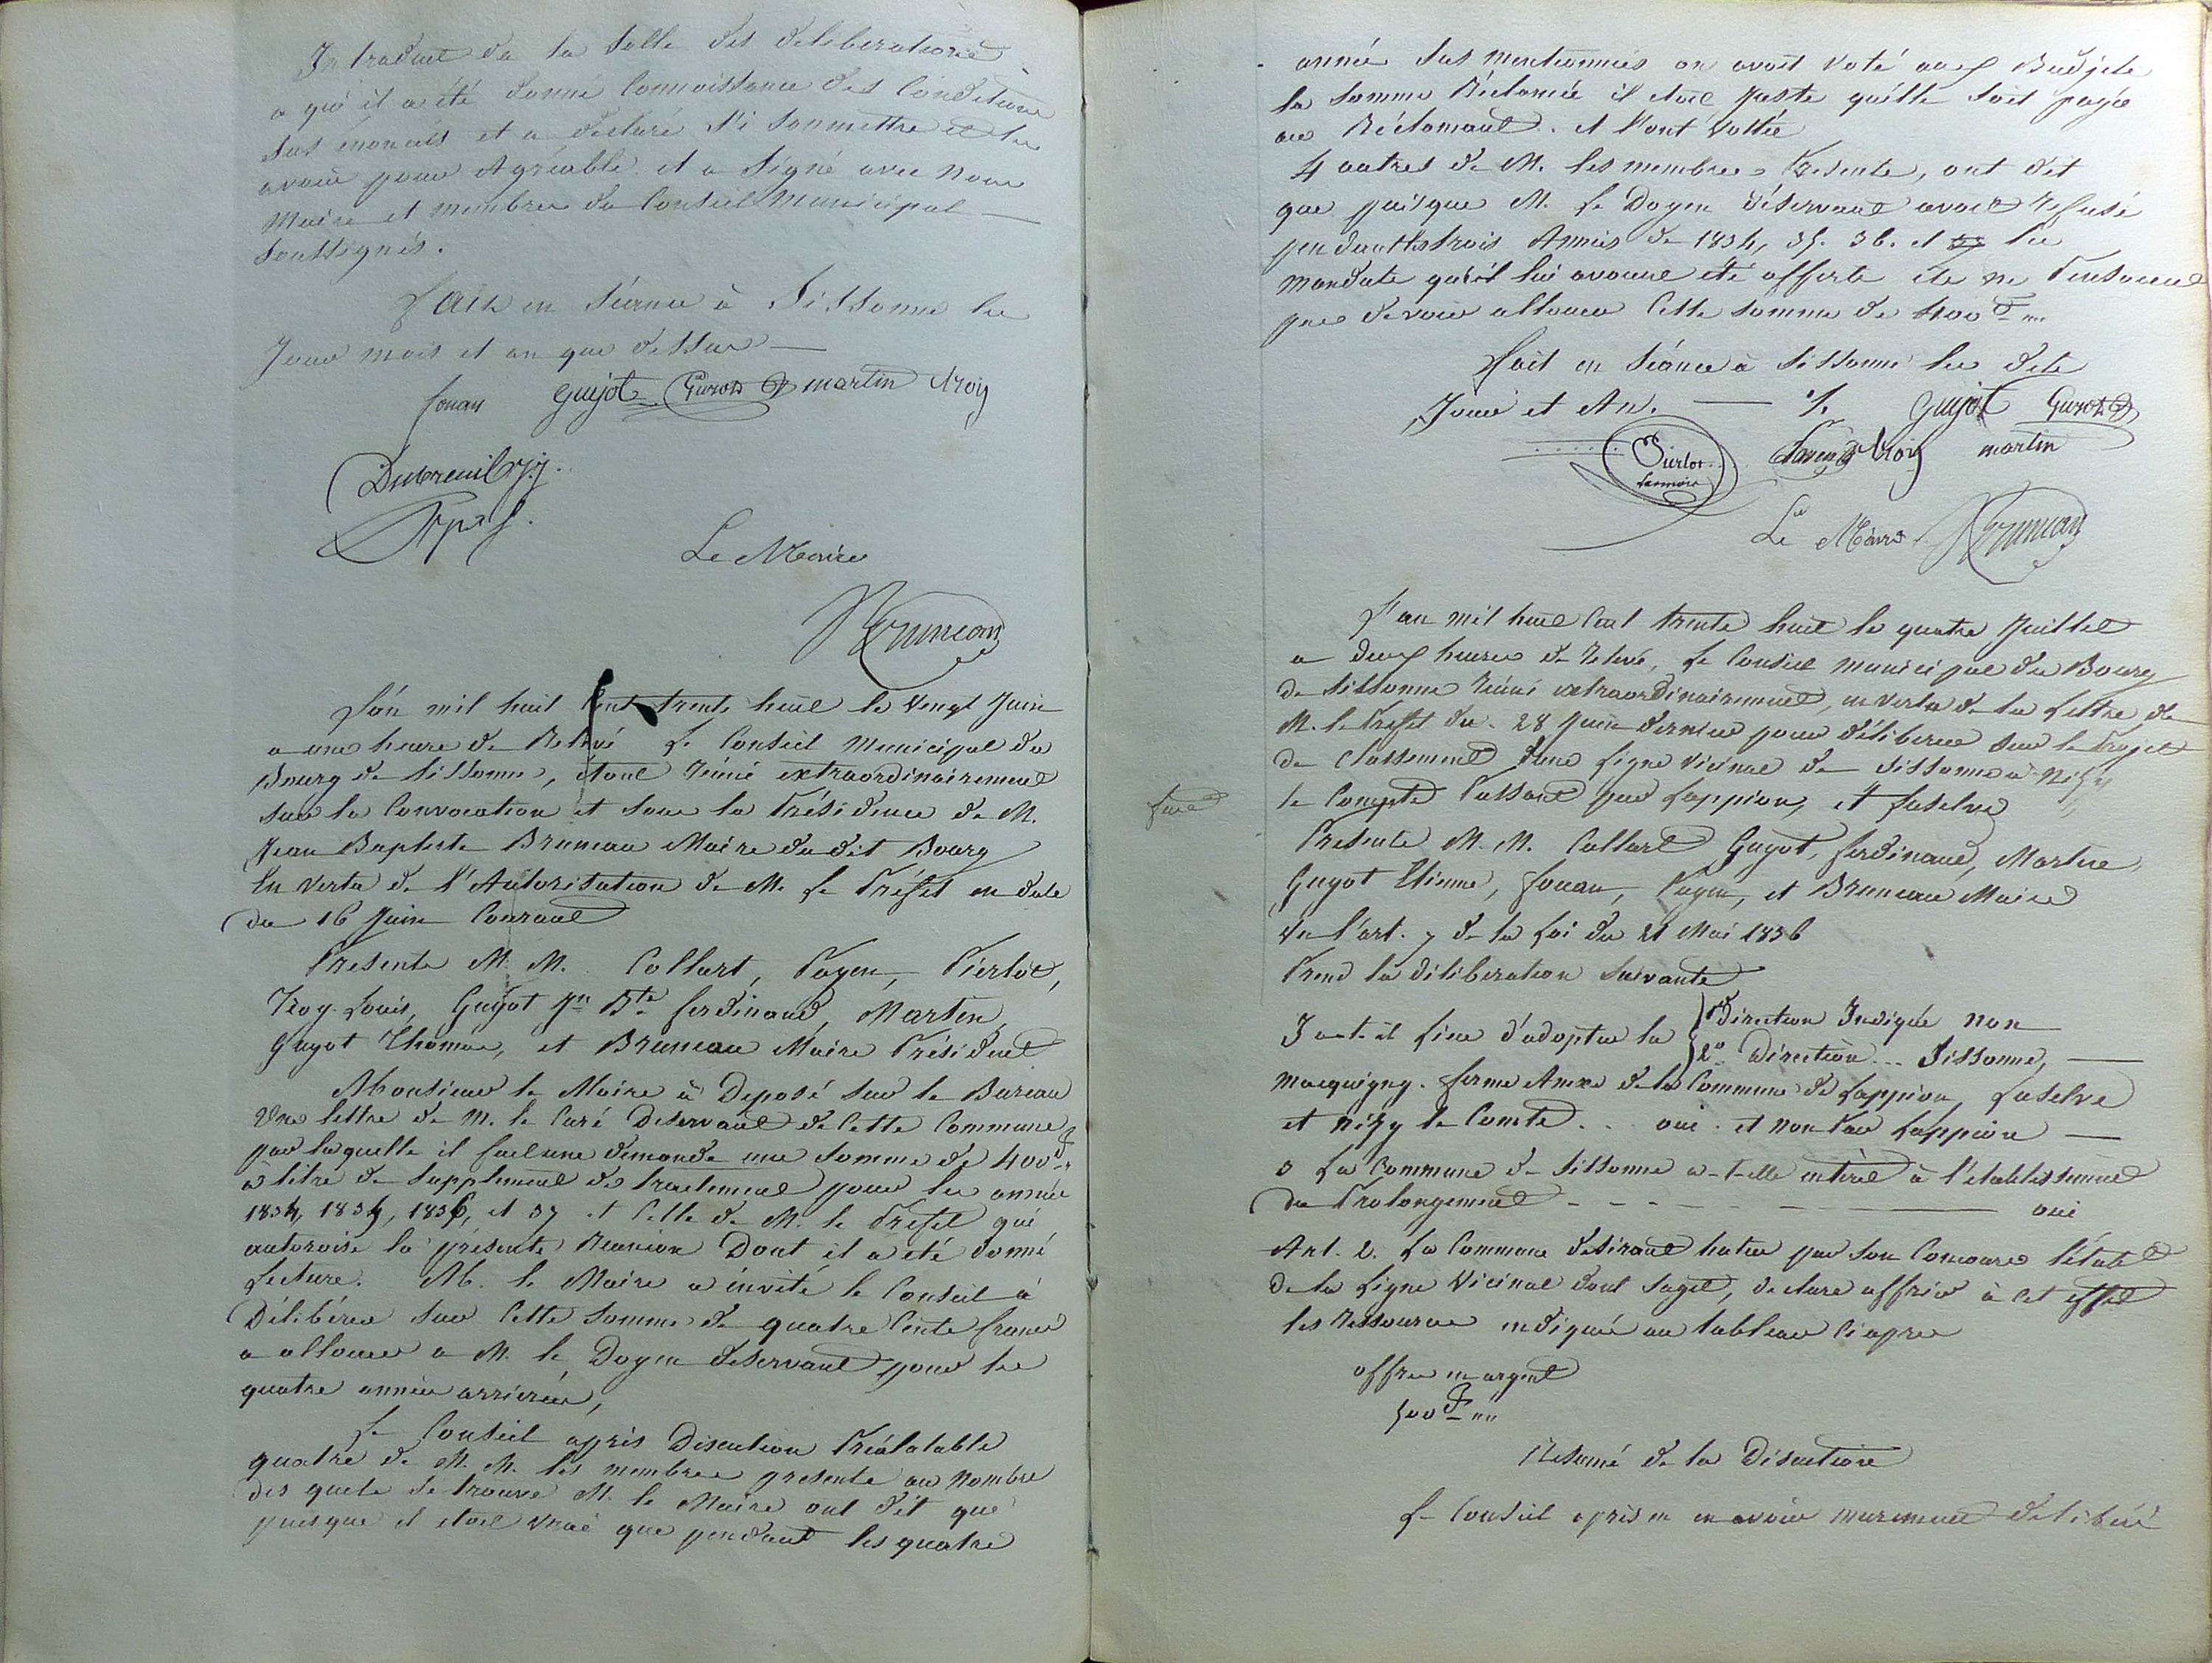 Introduit da la Salle des deliberations
a qui il a été donné Connoissance des Conditions
sus énoncés et a déclaré s'i soumettre et les
avoir pour Agréable. et a Signé avec nous
Maire et membres du Conseil Municipal —
Soussignés.
Fait en Séance à Sissonne les
Jour mois et an que dessus —
fouan Guyot Guyot martin troij
Dubreuil
Le Maire
Bruneau
L'an mil huit Cent trente huit le Vingt Juin
a une heure de Relevé Le Conseil Municipal du
Bourg de Sissonne, étant réuni extraordinairement
sur la Convocation et sous la Présidence de M.
Jean Baptiste Bruneau Maire du dit Bourg
En Vertu de l'Autorisation de M. Le Préfet en date
du 16 Juin Courant
Presents M. M. Collart, Payen, Pierlot,
Troy Louis, Guyot Jn Bte ferdinand, Martin,
Guyot Thomas, et Bruneau Maire Président
Monsieur le Maire à Déposé sur le Bureau
Une lettre de M. le Curé Deservant de Cette Commune
par laquelle il fait une demande une somme de 400 f
à titre de Supplement de traitement pour les année
1834, 1835, 1836, et 37 et Celle de M. le Préfet qui
autoroise la présente Reunion Dont il a été donné
Lecture. M. le Maire a invité le Conseil à
Délibérer sur Cette Somme de quatre Cents francs
a allouer a M. le Doyen deservant pour les
quatre années arriérées,
Le Conseil après Discution Préalatable
quatre de M. M. les membres presents au nombre
des quels se trouve M. le Maire ont dit que
puisque il etait vrai que pendant les quatre
année sus mentionnées on avoit Voté aux Budjets
la somme Réclamée il étoit Juste quélle soit payée
au Réclamant. et l'ont Vottée
4 autres de M. les membres Présents, ont dit
que puisque M. Le Doyen déservant avoit refusé
pendant les trois Années de 1834, 35. 36. et 37 les
mandats qu'il lui avaient été offerts ils ne Pensoient
pas devoir allouer Cette somme de 400 f
Fait en Séance à Sissonne les dits
Jour et An. — Guyot Guyot
Pierlot troij martin
Le Maire Bruneau
L'an mil huit Cent trente huit le quatre Juillet
a deux heures de relevé, Le Conseil municipal du Bourg
de Sissonne réuni extraordinairement, en vertu de la Lettre de
M. le Préfet du 28 Juin dernier pour déliberer sur le Projet
de Classement d'une Ligne vicinae de Sissonne a Nizy
le Compte Passant par Lappion, et Laselve
Presents M. M. Collart Guyot, ferdinand, Martin,
Guyot Etienne, fouan, Payen, et Bruneau Maire
Vu l'art. 7 de la Loi du 21 Mai 1836
Prend la déliberation Suivante
Y a-t-il lieu d'adopter la 1re Direction Indiquée non
2o Direction... Sissonne, —
Macquigny. ferme Annexe de la Commune de Lappion, Laselve
et Nizy le Comte... oui. et non Par Lappion —
La Commune de Sissonne a-t-elle intérêt à l'établissement
du Prolongement — — — oui
Art. 2. La Commune desirant hater par son Concours l'établt
de la Ligne Vicinal dont Sagit, declare offrir à cet effet
les Ressources indiquées au tableau Ci après
offre en argent
500 f
Resumé de la Discution
Le Conseil après en avoir murement délibéré